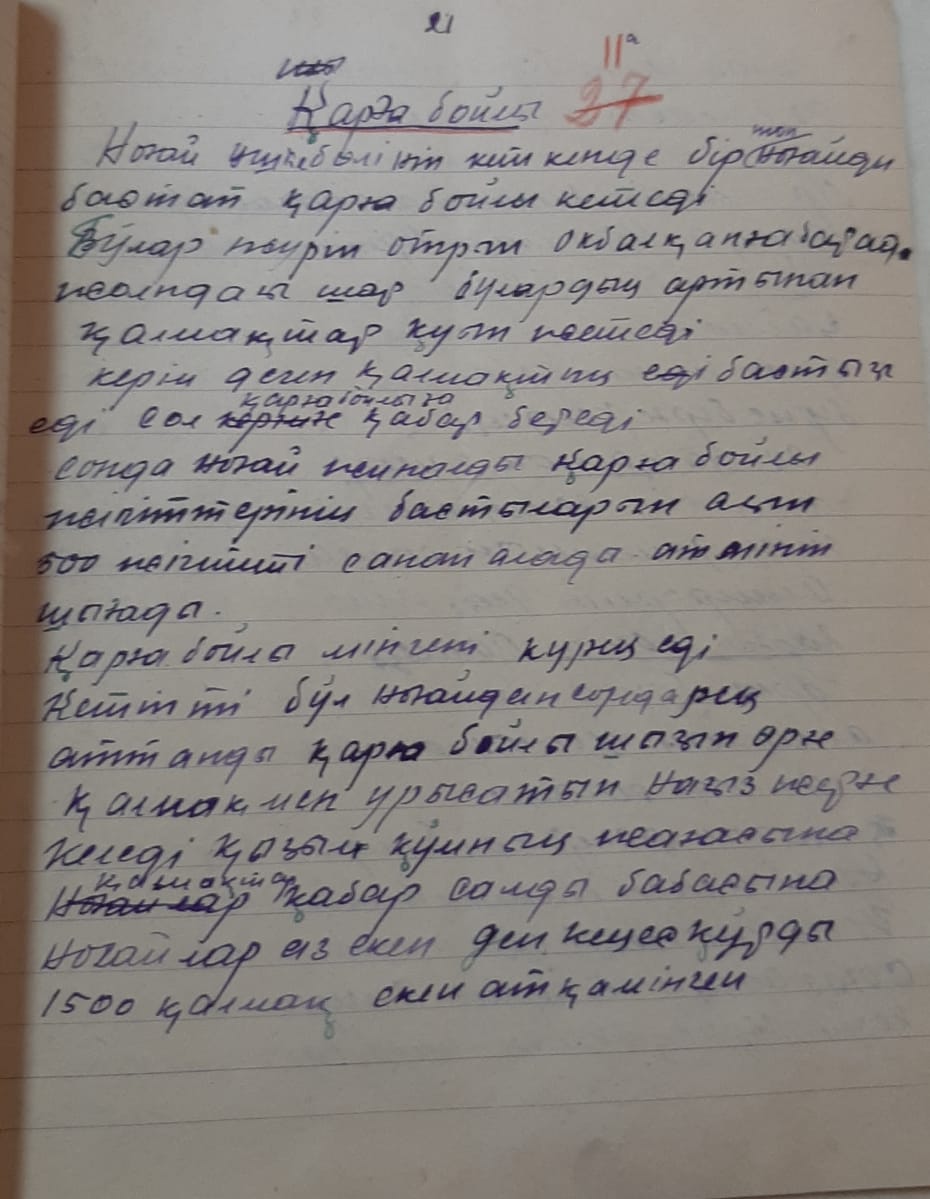 21
11ª
27
Қарға бойлы
Ноғай үшке бөлініп кеткенде бір топ ноғайды
бастап қарға бойлы кетеді
Бұлар жүріп отрып
жолндағы шөр бұлардың артынан
қалмақтар қуып жетеді
керім деген қалмақтың еді бастығы
еді сол қарға бойлыға қабар береді
сонда ноғай жиналды Қарға бойлы
жігіттерінің бастыларын алып
500 жігітті санап алады ат мініп
шығады.
Қарға бойлы мінгені күрең еді
Кетіпті бұл ноғайдан сондарең
аттанды қарға бойлы шағып өрге
Қалмақмен урысатын нағыз жерге
Келеді қызыл құмның жағасына
қалмақтар қабар салды бабасына
Ноғайлар аз екен деп кеңес құрды
1500 қалмақ екен атқамінген